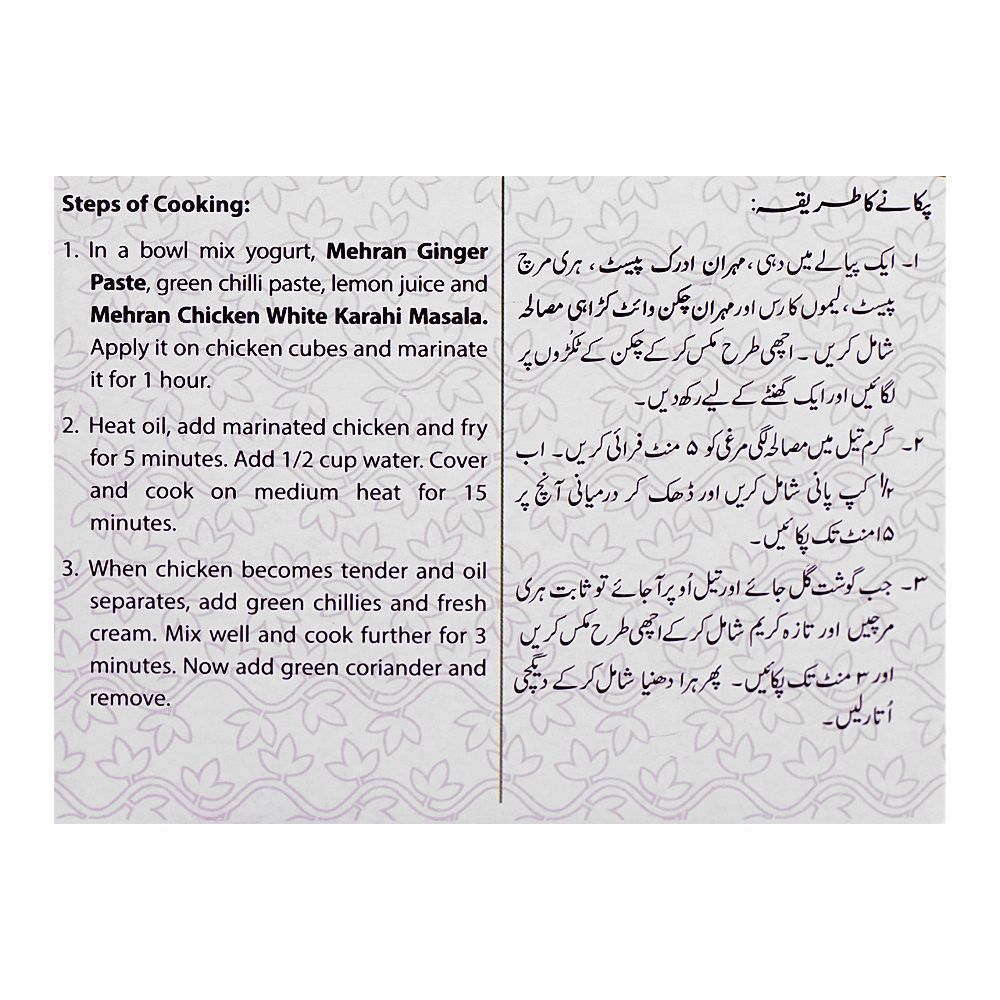 Steps of Cooking:
1. In a bowl mix yogurt, Mehran Ginger
Paste, green chilli paste, lemon juice and
Mehran Chicken White Karahi Masala.
Apply it on chicken cubes and marinate
it for 1 hour.
2. Heat oil, add marinated chicken and fry
for 5 minutes. Add 1/2 cup water. Cover
and cook on medium heat for 15
minutes.
3. When chicken becomes tender and oil
separates, add green chillies and fresh
cream. Mix well and cook further for 3
minutes. Now add green coriander and
remove.
پکانے کا طریقہ:
۱۔ ایک پیالے میں دہی، مہران ادرک پیسٹ، ہری مرچ
پیسٹ، لیموں کا رس اور مہران چکن وائٹ کڑاہی مصالحہ
شامل کریں ۔ اچھی طرح مکس کر کے چکن کے ٹکڑوں پر
لگائیں اور ایک گھنٹے کے لیے رکھ دیں۔
۲۔ گرم تیل میں مصالحہ لگی مرغی کو ۵ منٹ فرائی کریں۔ اب
۱/۲ کپ پانی شامل کریں اور ڈھک کر درمیانی آنچ پر
۱۵ منٹ تک پکائیں۔
۳۔ جب گوشت گل جائے اور تیل اُوپر آ جائے تو ثابت ہری
مرچیں اور تازہ کریم شامل کر کے اچھی طرح مکس کریں
اور ۳ منٹ تک پکائیں۔ پھر ہرا دھنیا شامل کر کے دیگچی
اُتار لیں۔